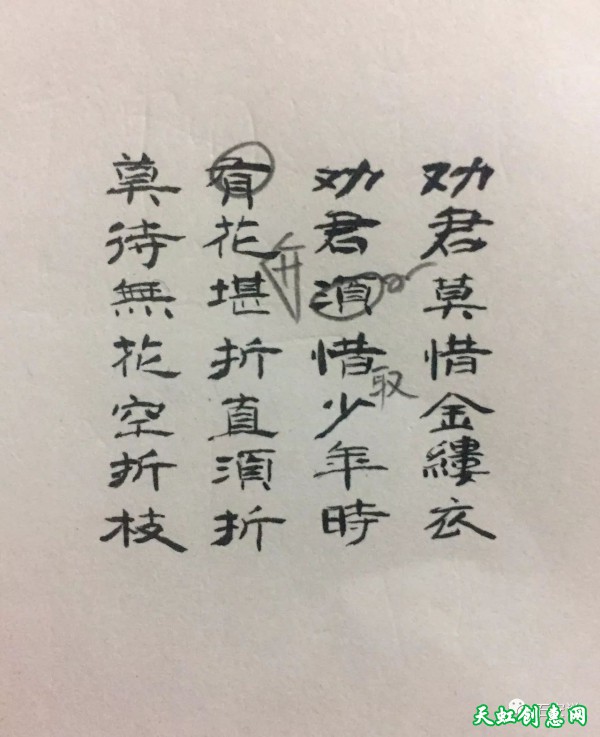 劝君莫惜金縷衣
劝君須惜少年時
有花堪折直須折
莫待無花空折枝
取
天虹创惠网